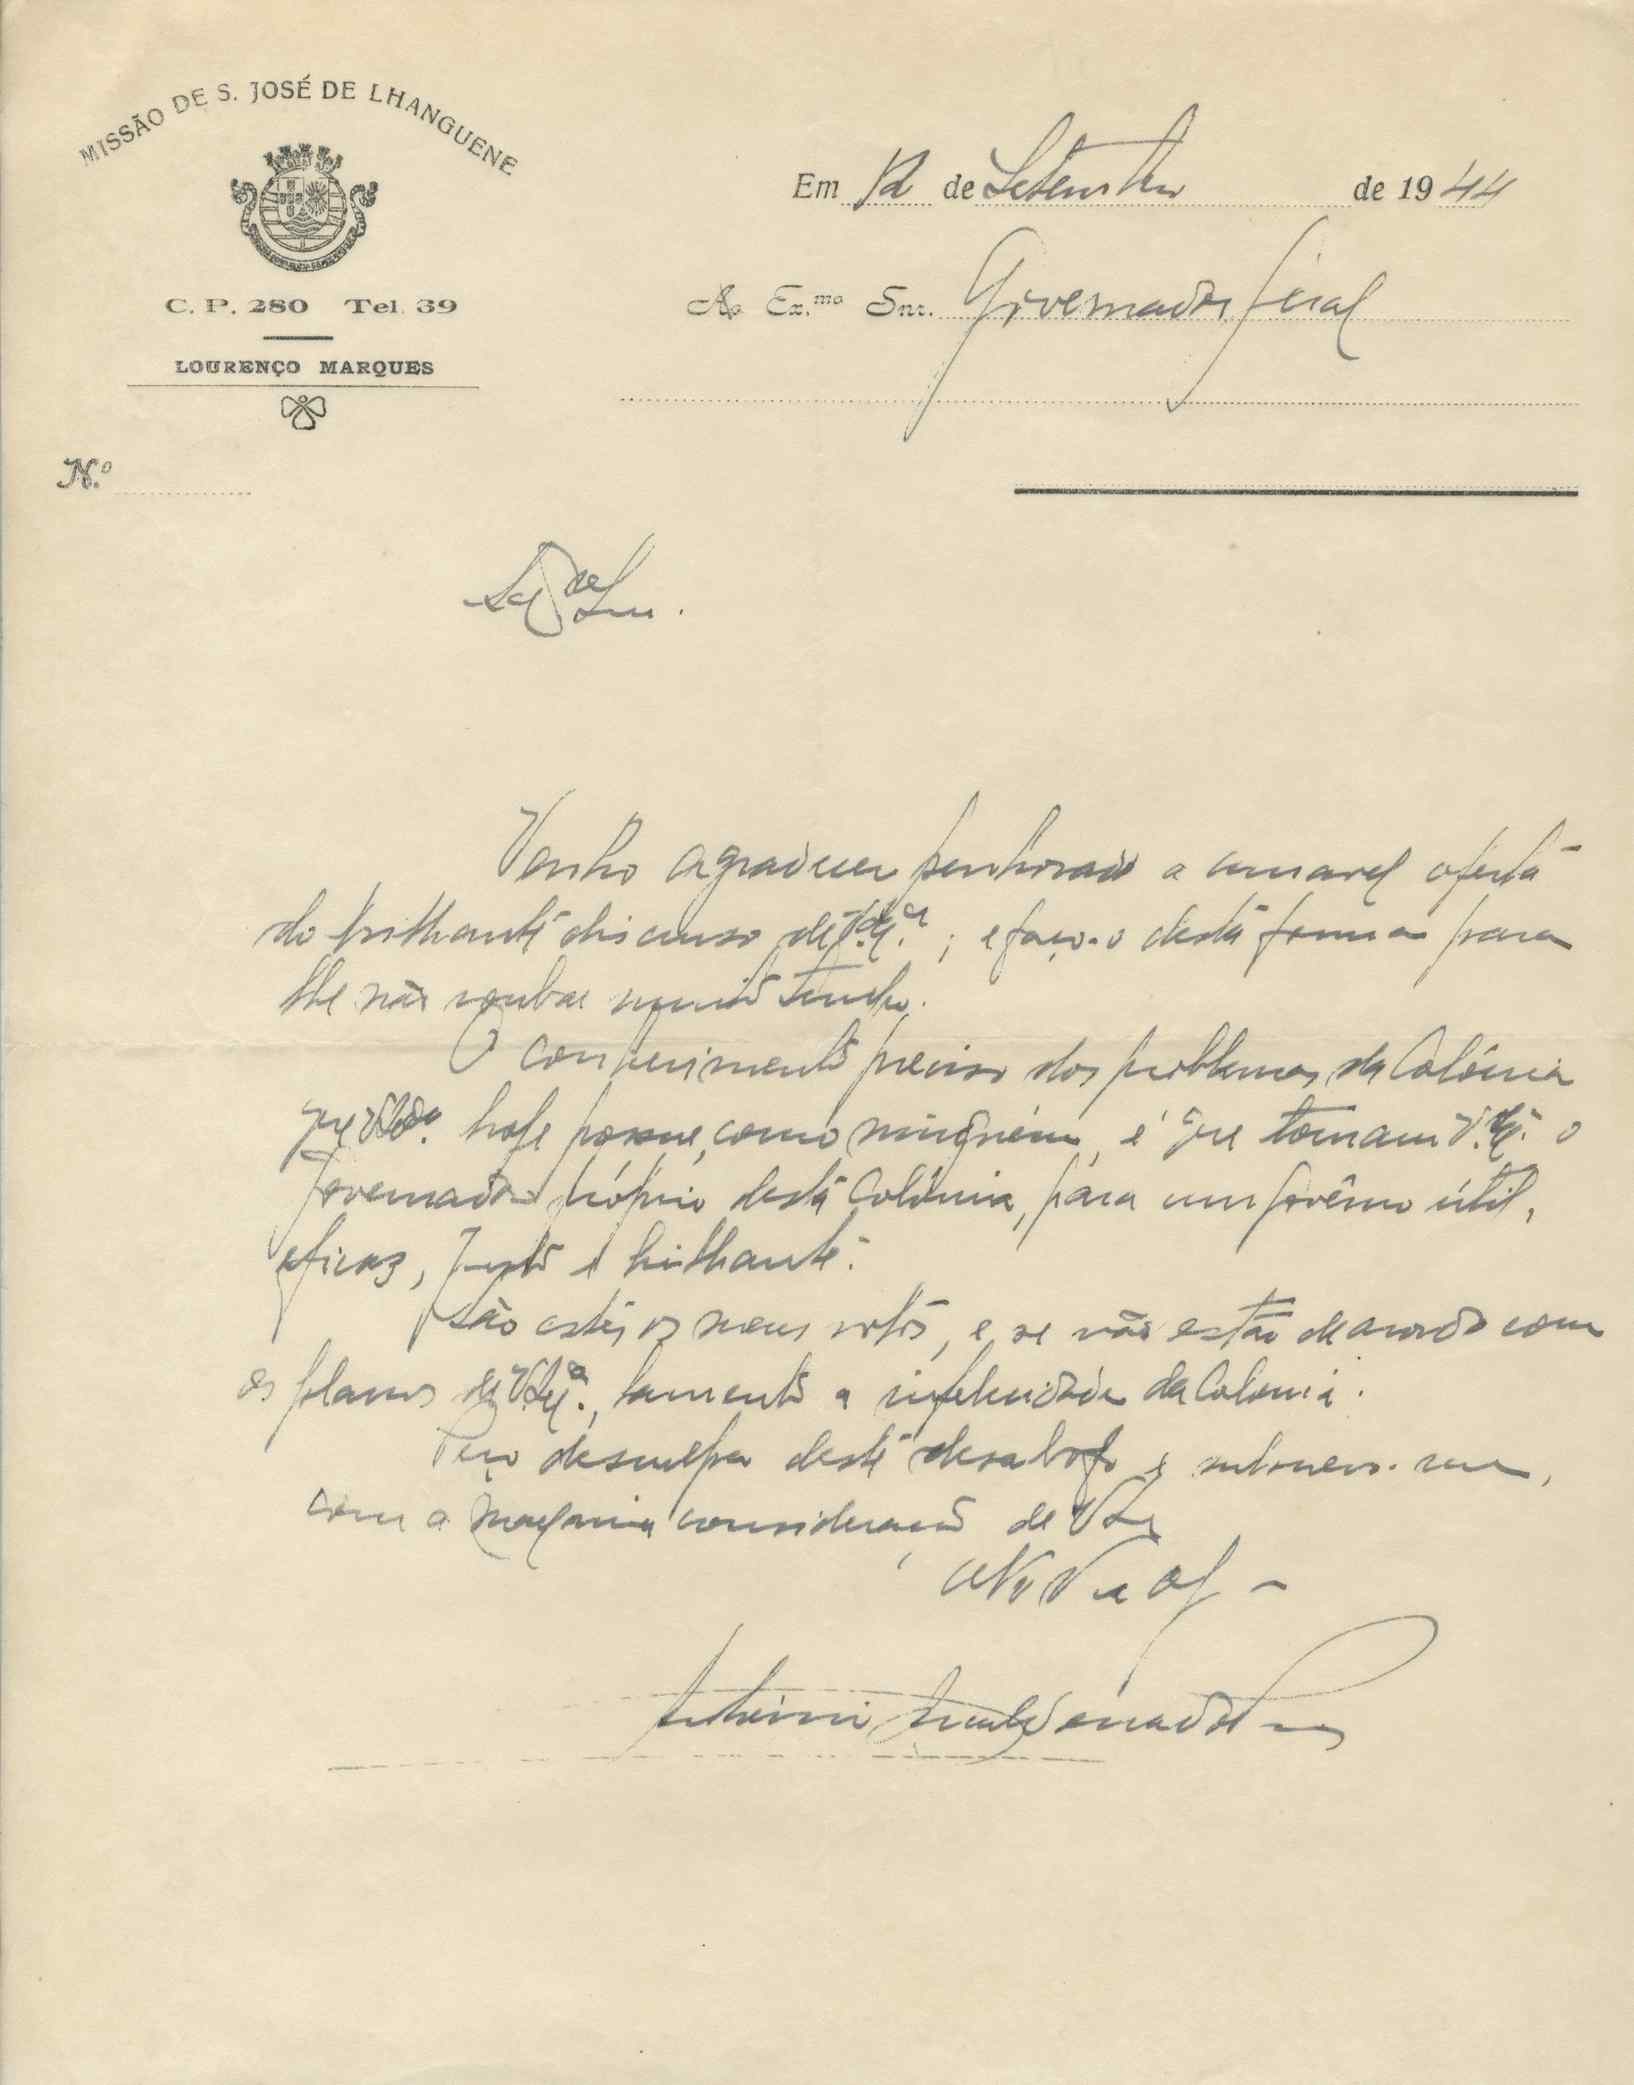 MISSÃO DE S. JOSÉ DE LHANGUENE
C. P. 280 Tel. 39
LOURENÇO MARQUES
N.º
Em 12 de Setembro de 1944
Ao Ex.mo Snr. Governador Geral
Venho agradecer penhorado a amavel oferta
do brilhante discurso de V. Ex.a; e faço-o desta forma para
lhe não roubar muito tempo.
O conhecimento preciso dos problemas da Colónia
que V. Ex.a hoje possue, como ninguém, é que tornam V. Ex.a o
Governador próprio desta Colónia, para um govêrno útil,
eficaz, justo e brilhante.
São estes os meus votos, e, se não estão de acordo com
os planos de V. Ex.a, lamento a infelicidade da Colonia.
Peço desculpa deste desabafo e subscrevo-me,
com a maxima consideração de V. Ex